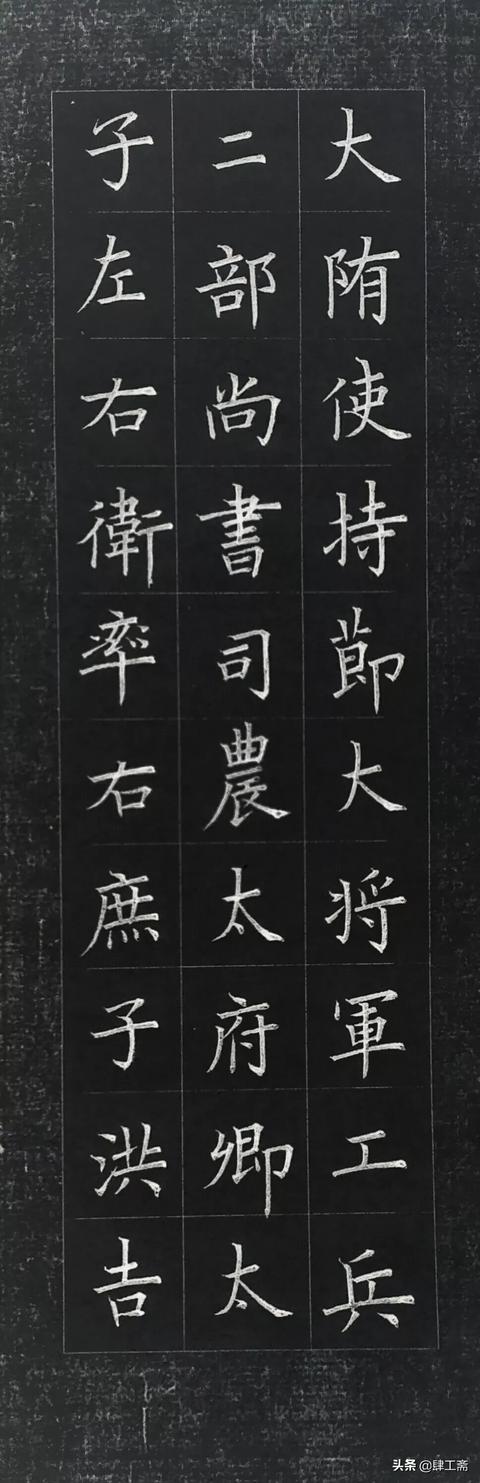 大陏使持莭大将軍工兵
二部尚書司農太府卿太
子左右衛率右庶子洪吉
头条 @肆工斋